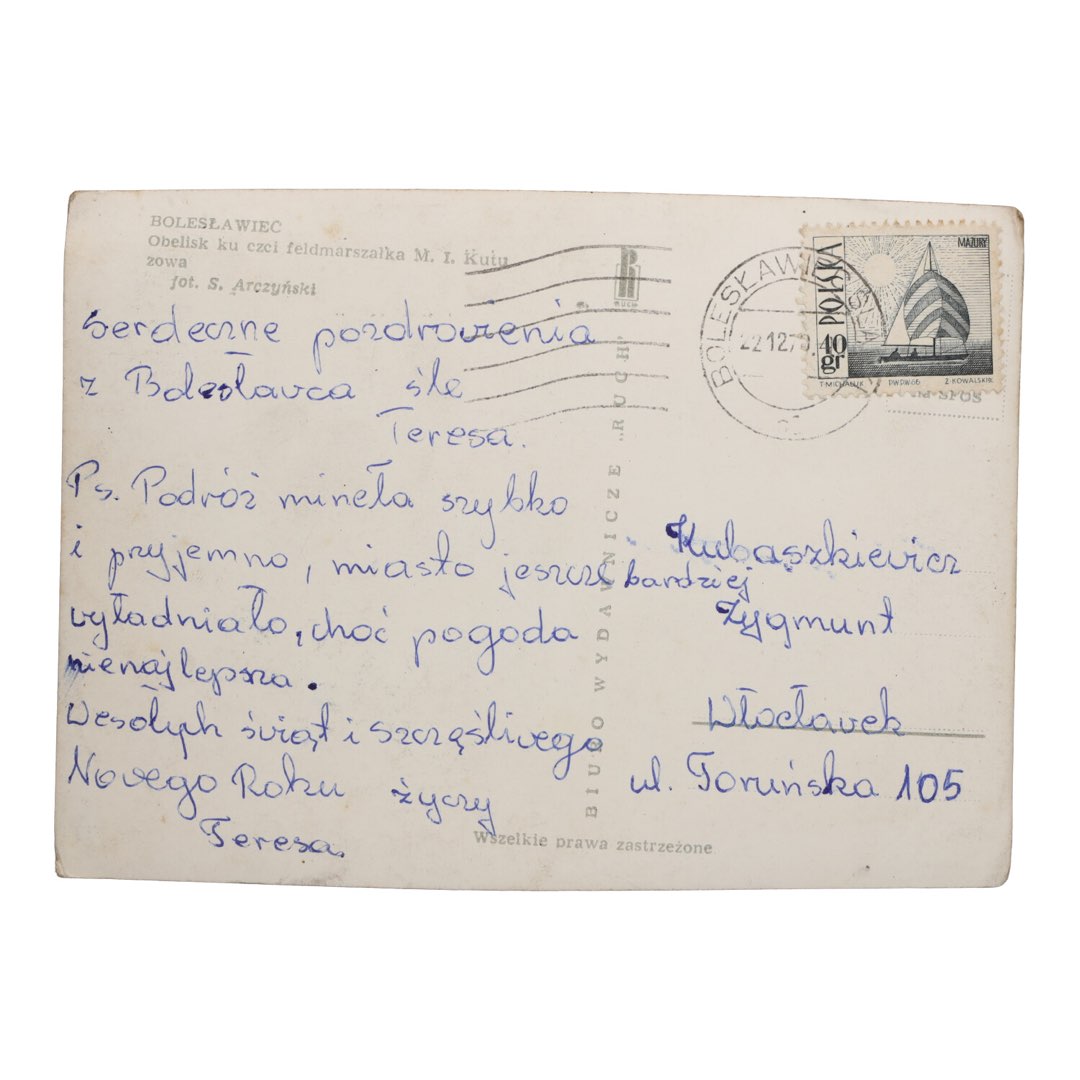 BOLESŁAWIEC
Obelisk ku czci feldmarszałka M. I. Kutu
zowa
fot. S. Arczyński
Serdeczne pozdrowienia
z Bolesławca śle
Teresa.
Ps. Podróż mineła szybko
i przyjemno, miasto jeszcze bardziej
wyładniało, choć pogoda
nienajlepsza.
Wesołych świąt i szczęśliwego
Nowego Roku życzy
Teresa.
BIURO WYDAWNICZE „RUCH"
RUCH
Wszelkie prawa zastrzeżone
BOLESŁAWIEC
22.12.70
POLSKA
40
gr
MAZURY
T. MICHALUK PWPW 66 Z. KOWALSKI
Kubaszkiewicz
Zygmunt
Włocławek
ul. Toruńska 105